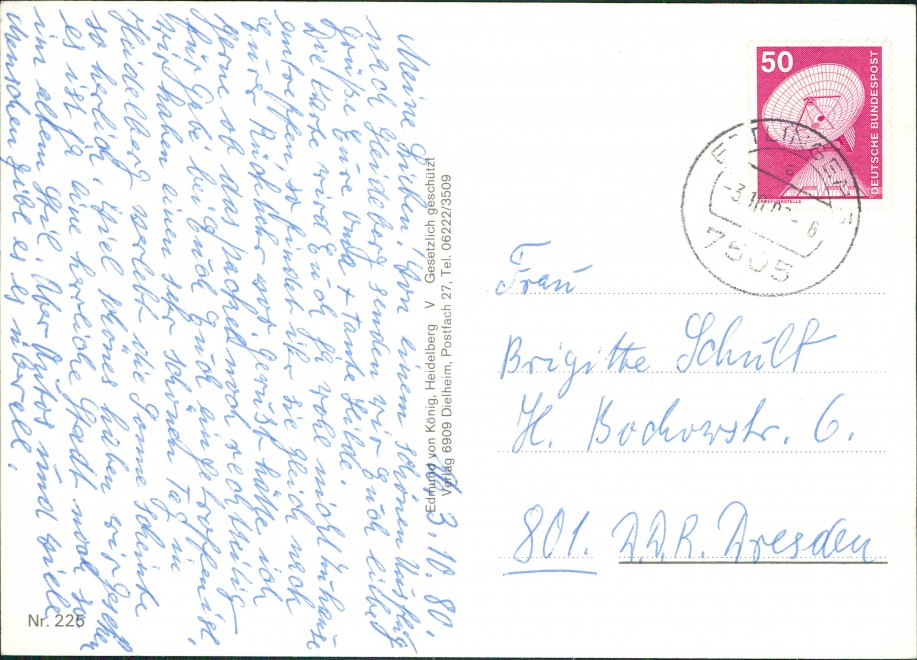 d. 3.10.80.
Meine Lieben! Von einem schönen Ausflug
nach Heidelberg senden wir Euch liebe
Grüße Eure Omda + Tante Hilde.
Die Karte wird Euch ja wohl nicht zuhause
antreffen so findet ihr sie gleich nach
eurer Rückkehr vor. Gewußt hätte ich
gerne ob das Packet noch rechtzeitig
für Gebi bei Euch eingetroffen ist.
Wir haben einen sehr schönen Tag in
Heidelberg verlebt die Sonne scheinte
so herlich viel schönes haben wir gesehen
es ist ja eine herliche Stadt noch so
im alten Stil. Aber Autos und viele
Menschen gibt es es überall.
Edmund von König, Heidelberg V Gesetzlich geschützt
Verlag 6909 Dielheim, Postfach 27, Tel. 06222/3509
Nr. 225
50
DEUTSCHE BUNDESPOST
ERDEFUNKSTELLE
ETTLINGEN
-3.10.80-
7505
Frau
Brigitte Schult
H. Bockowstr. 6.
801. DDR. Dresden